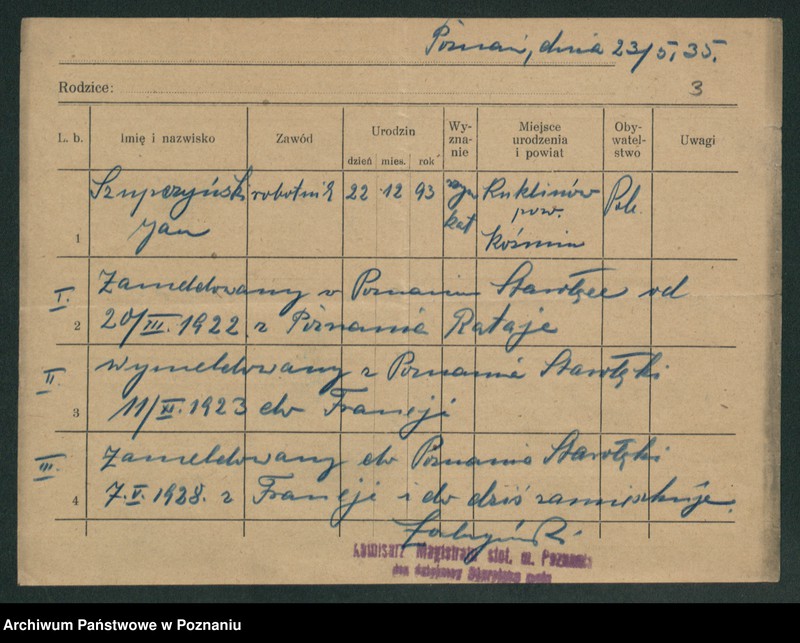 Poznań, dnia 23/5. 35.
Rodzice:
3
L. b.
Imię i nazwisko
Zawód
Urodzin
dzień mies. rok
Wy-
zna-
nie
Miejsce
urodzenia
i powiat
Oby-
watel-
stwo
Uwagi
1
Szupczyński
Jan
robotnik
22 12 93
kat
Kuklinów
pow.
Koźmin
Pol.
I.
Zameldowany w Poznaniu Starołęce od
2
20/III. 1922 z Poznania Rataje
II
wymeldowany z Poznania Starołęki
3
11/XI. 1923 do Francji
III
Zameldowany do Poznania Starołęki
4
7.V.1928. z Francji i do dziś zamieszkuje.
Komisarz Magistratu stoł. m. Poznania
Archiwum Państwowe w Poznaniu